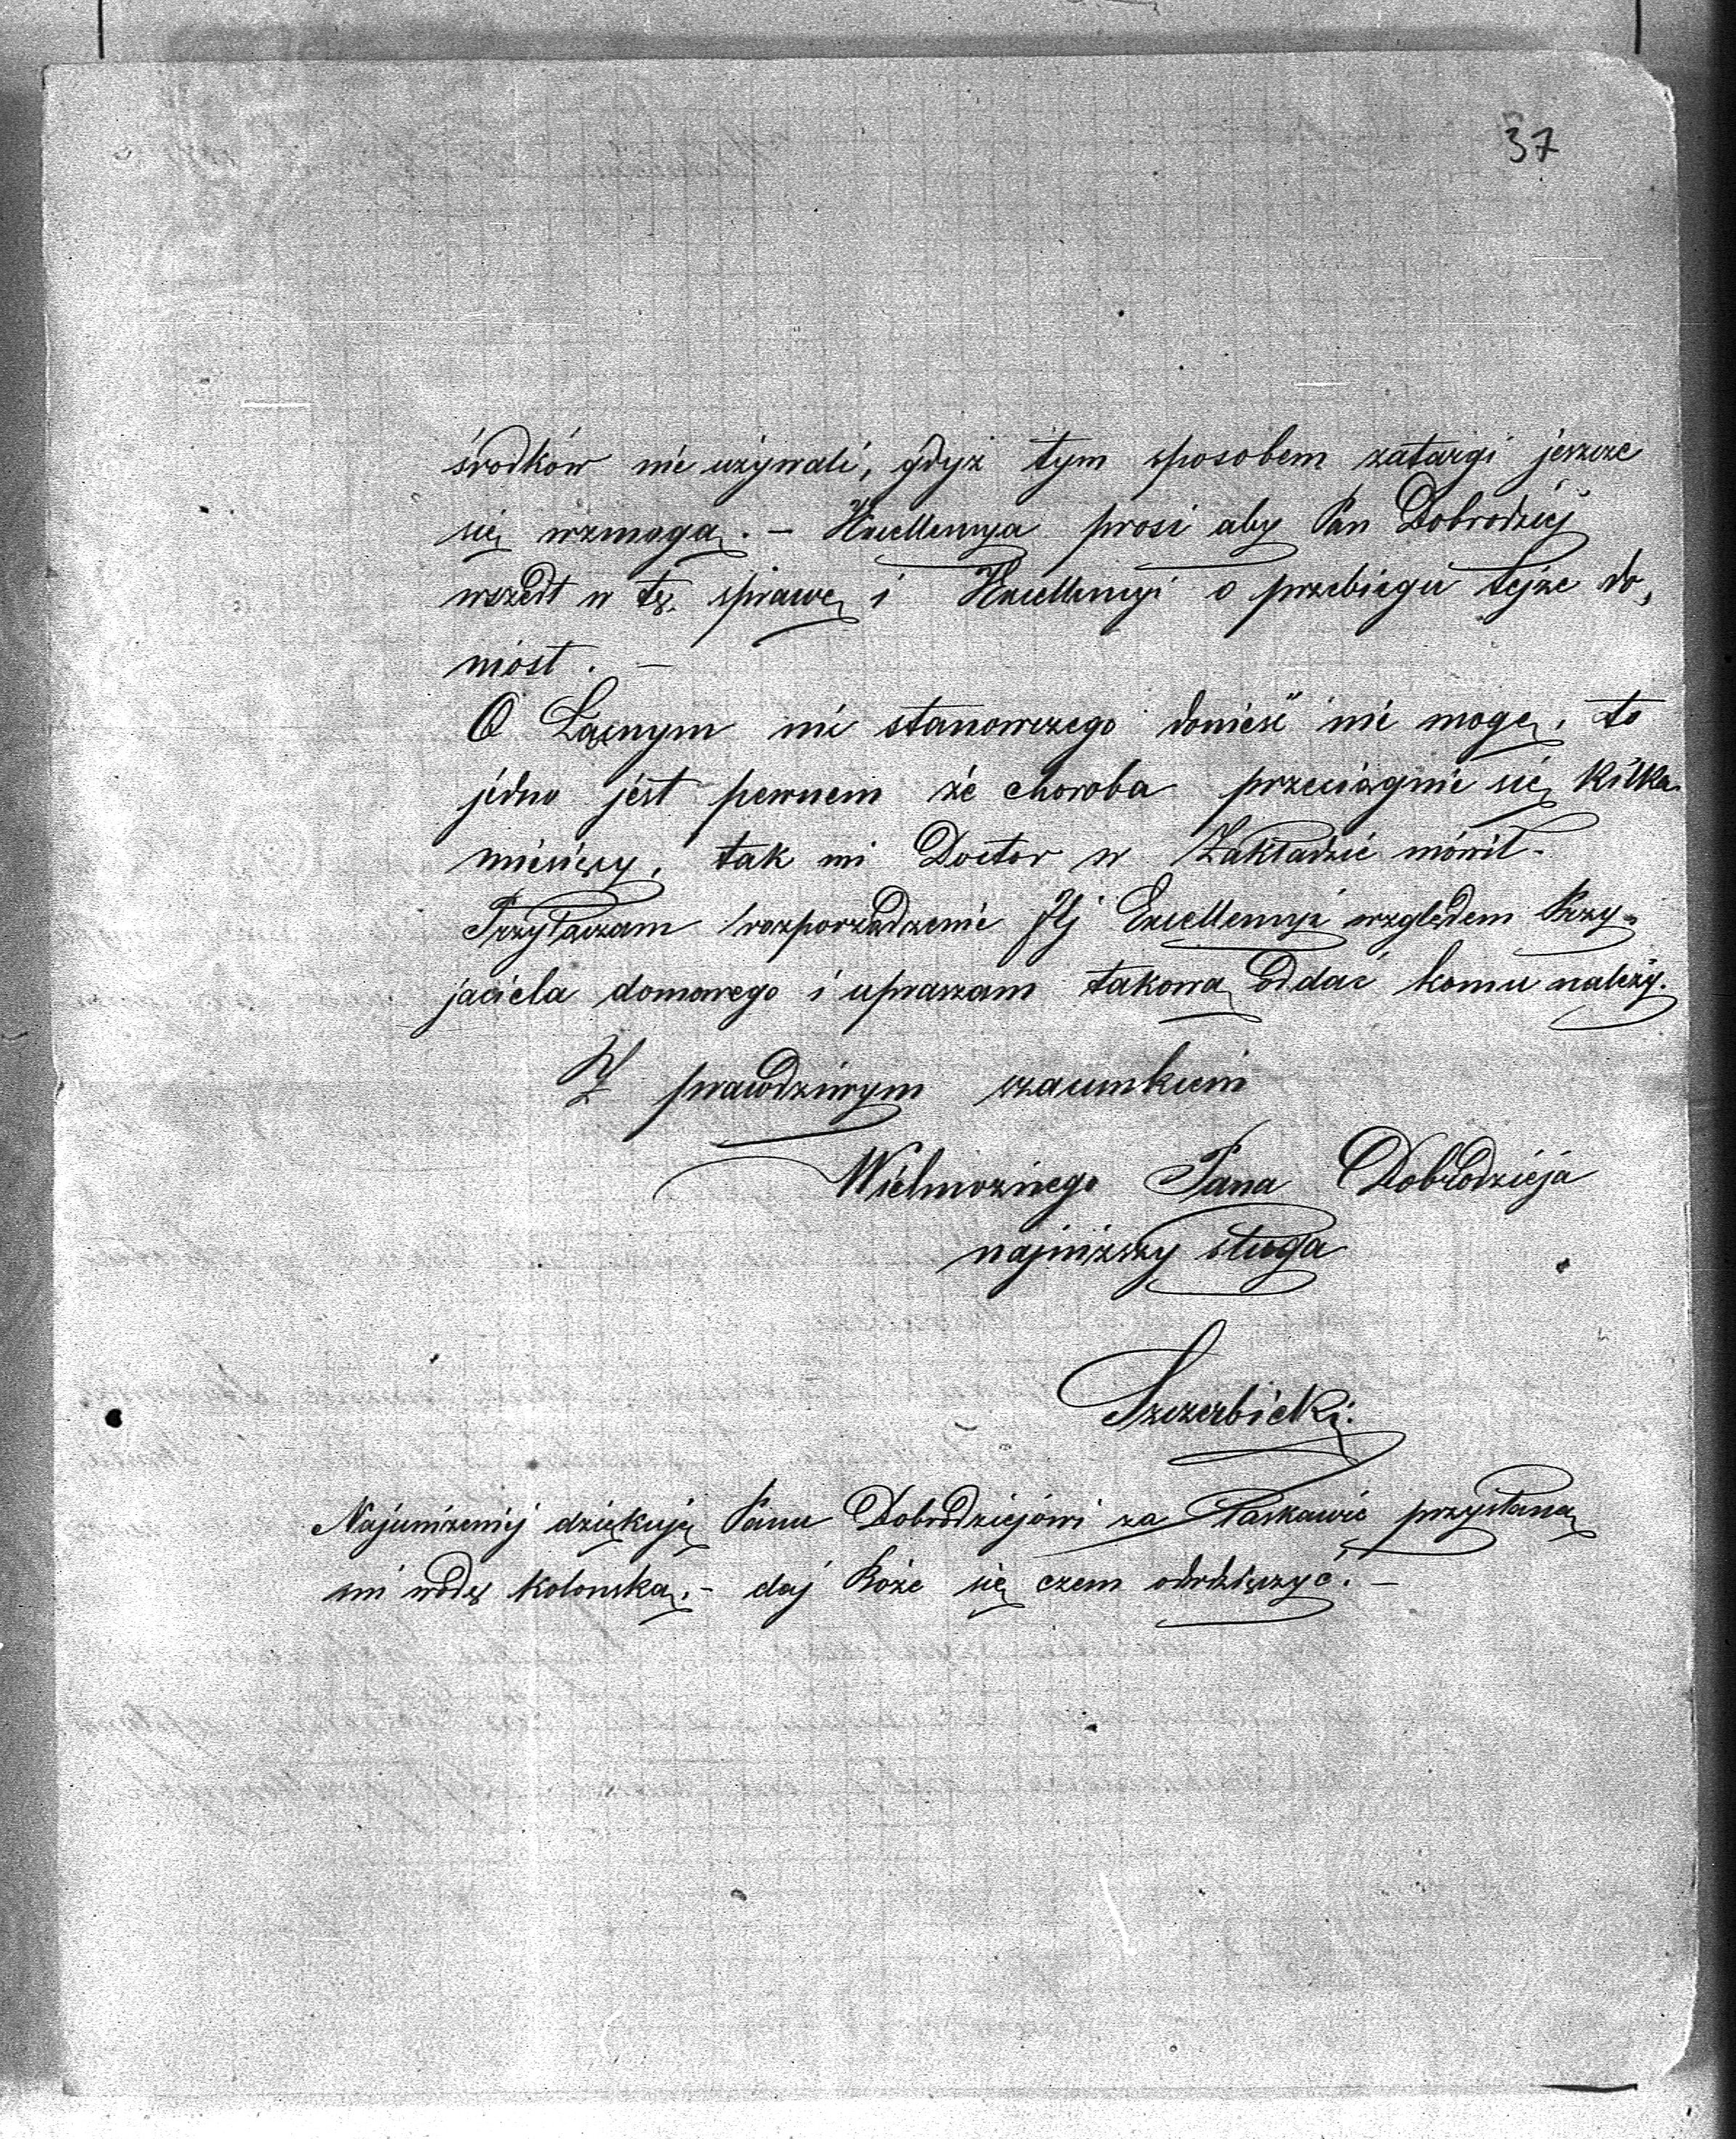 37
środków nie używali, gdyż tym sposobem zatargi jeszcze
się wzmogą. – Excellencya prosi aby Pan Dobrodziej
wszedł w tę sprawę i Excellencyi o przebiegu tejże do„
niósł. –
O Łącnym nic stanowczego donieść nie mogę, to
jedno jest pewnem że choroba przeciągnie się kilka
miesięcy, tak mi Doctor w Zakładzie mówił.
Przyłączam rozporządzenie Jej Excellencyi względem Przy„
jaciela domowego i upraszam takową oddać komu należy.
Z prawdziwym szacunkiem
Wielmożnego Pana Dobrodzieja
najniższy sługa
Szczerbicki
Najuniżeniej dziękuję Panu Dobrodziejowi za łaskawie przysłaną
mi wodę kolońską. – daj Boże się czem odwdzięczyć. –